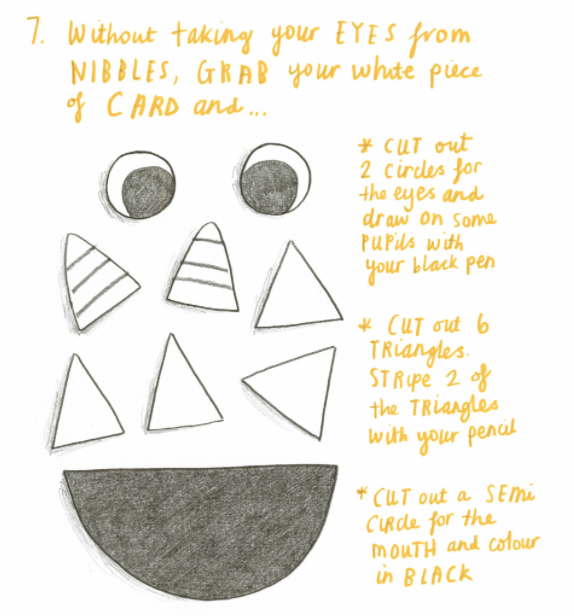 7. Without taking your EYES from
NIBBLES, GRAB your white piece
of CARD and...
* CUT out
2 circles for
the eyes and
draw on some
PUPils with
your black pen
* CUT out 6
TRiangles.
STRipe 2 of
the TRiangles
with your pencil
* CUT out a SEmi
CiRcle for the
mOUTH and colour
in BLACK